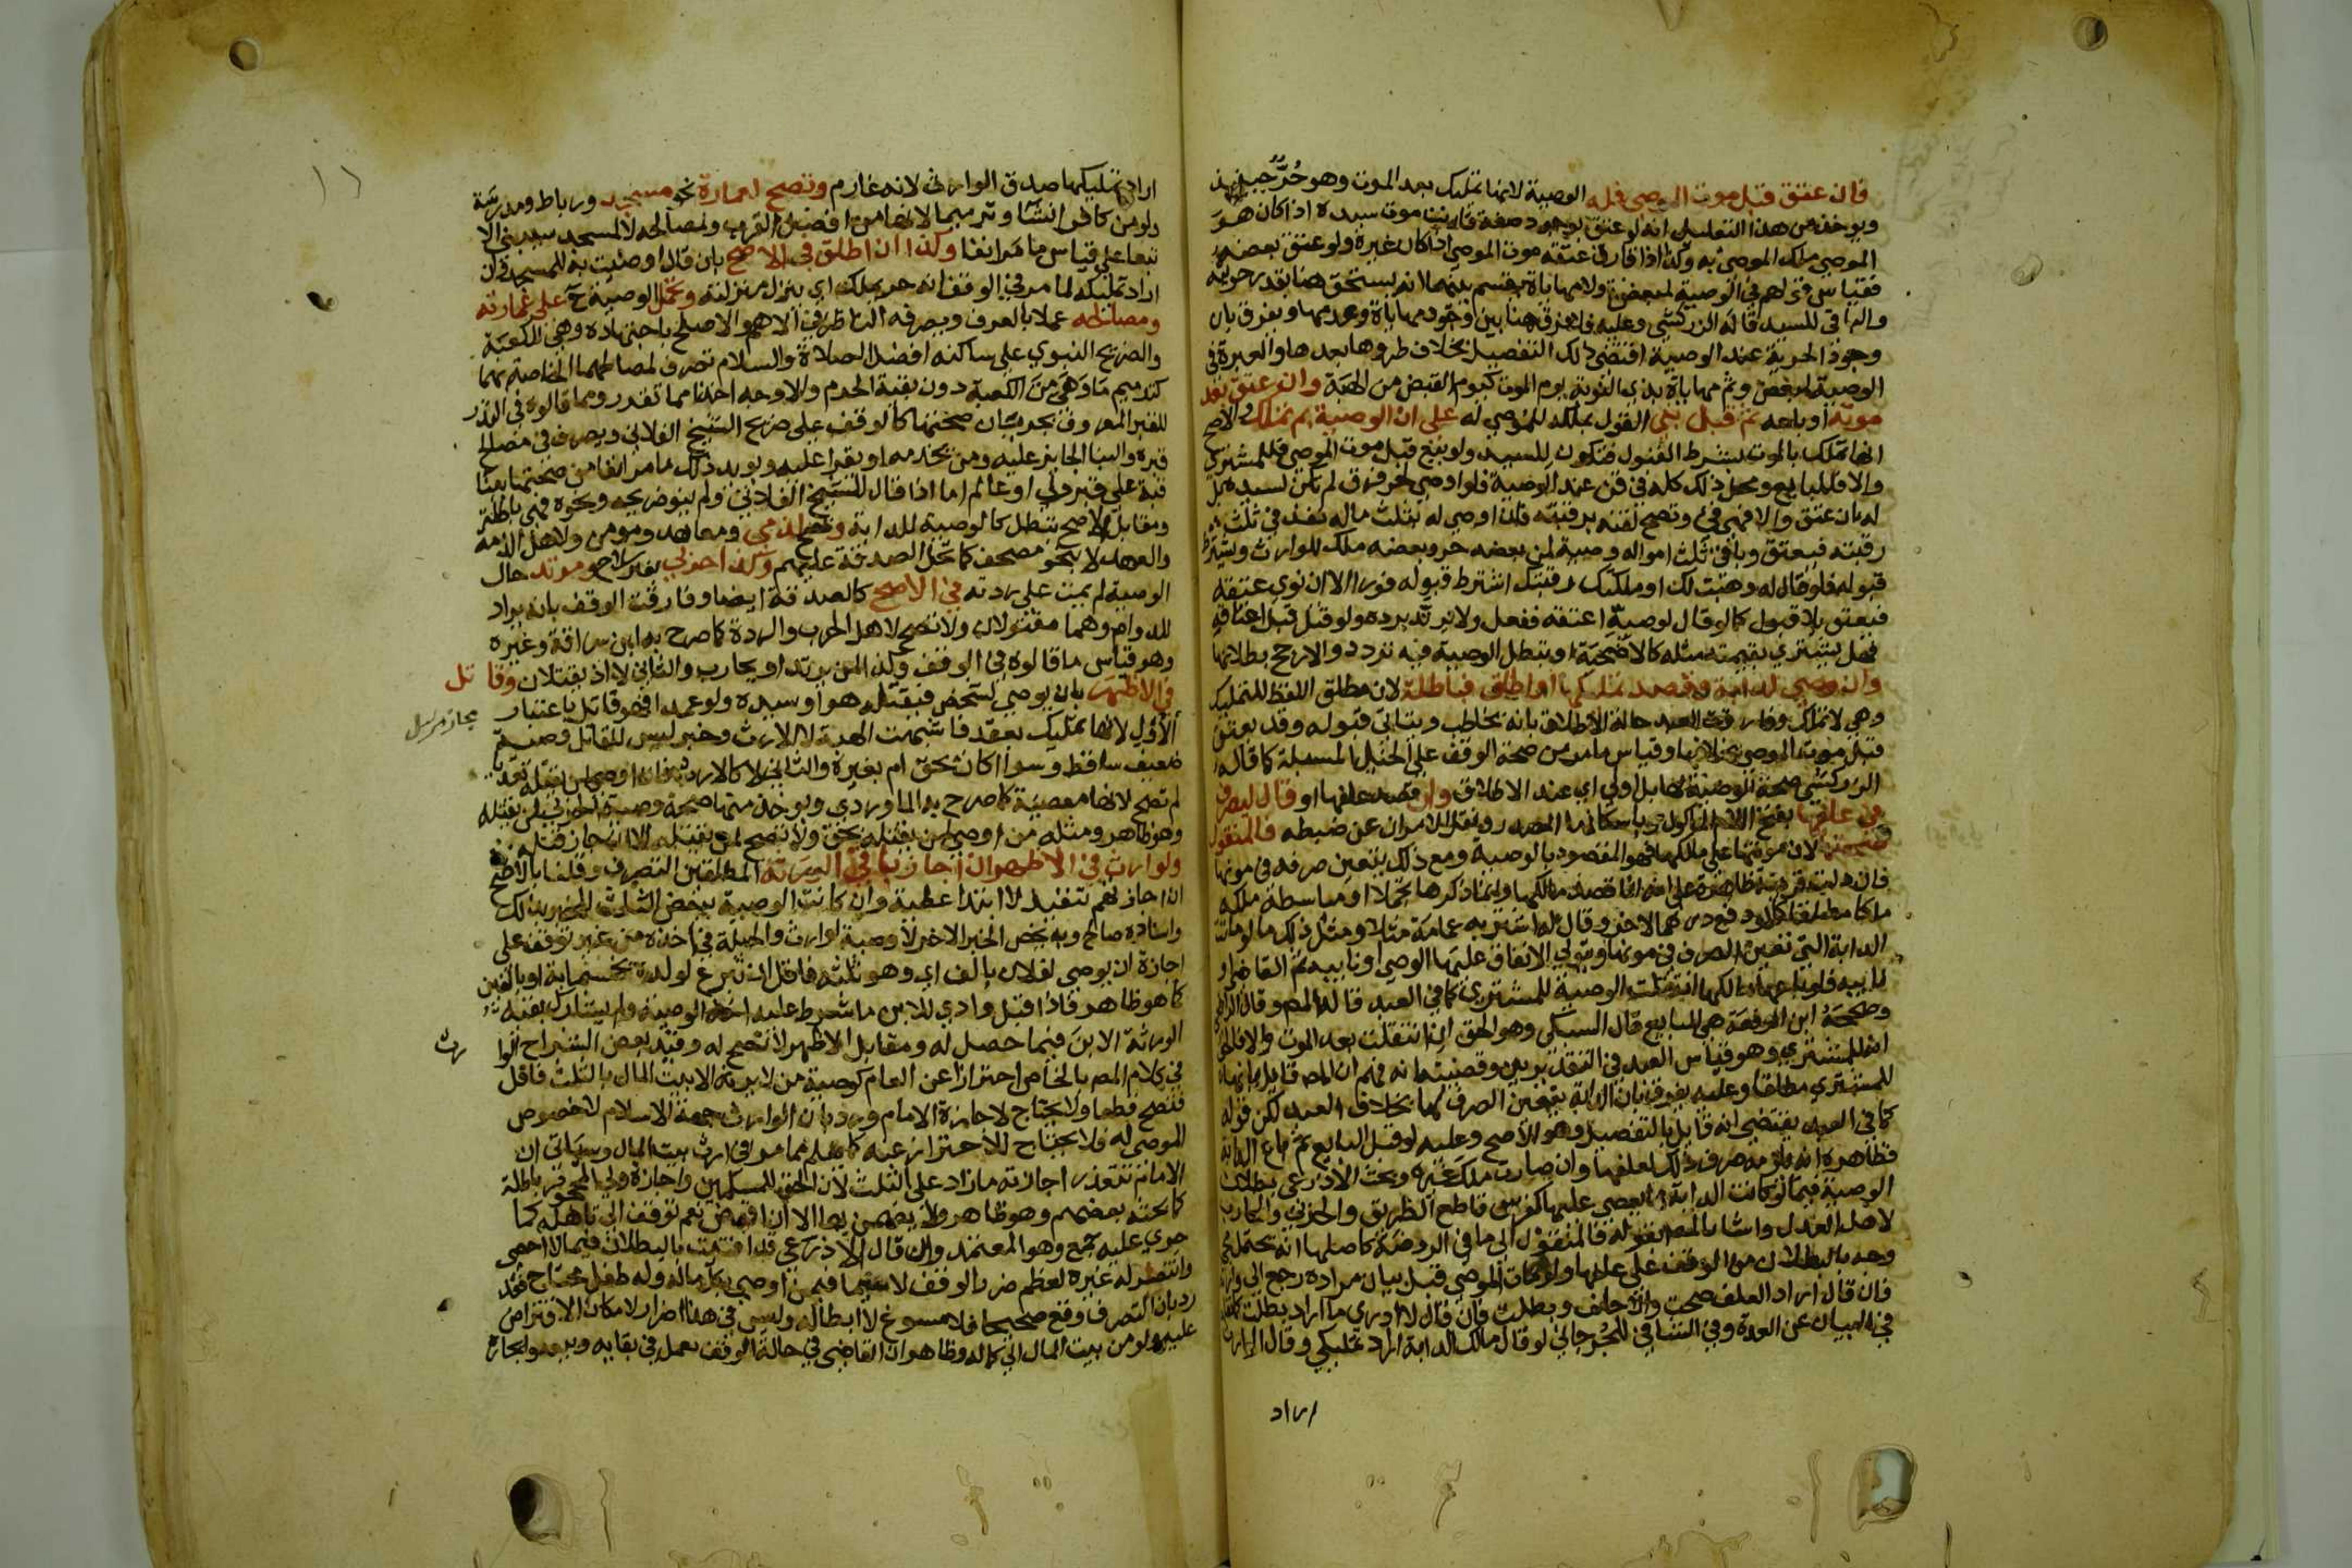 فان عتق قبل موت الموصي فله الوصية لانها تمليك بعد الموت وهو حر حينئذ
ويوخذ من هذا التعليل انه لو عتق بوجود صفة قارنت موت سيده اذا كان هو
الموصي ملك الموصى به وكذا اذا قارن عتقه موت الموصي اذا كان غيره ولو عتق بعضه
فقياس قولهم في الوصية لمبعض ولا مهاياة يقسم بينهما لانه يستحق هنا بقدر حريته
والباقي للسيد قاله الزركشي وعليه فايفرق هنا بين وجود مهاياة وعدمها ويفرق بان
وجود الحرية عند الوصية اقتضى ذلك التفصيل بخلاف طروها بعدها والعبرة في
الوصية لمبعض وثم مهاياة بذي النوبة يوم الموت كيوم القبض من الهبة وان عتق بعد
موته او باعه ثم قبل بني القول بملكه للموصي له على ان الوصية بم تملك والاصح
انها تملك بالموت بشرط القبول فتكون للسيد ولو بيع قبل موت الموصي فللمشتري
والا فللبايع ومحل ذلك كله في قن عند الوصية فلو اوصى لحر فرق لم تكن لسيده بل
له بان عتق والا فهي فيء وتصح لقنه برقبته فان اوصى له بثلث ماله نفذ في ثلث
رقبته فيعتق وباقي ثلث امواله وصية لمن بعضه حر وبعضه ملك للوارث ويشترط
قبوله فلو قال له وهبت لك او ملكتك رقبتك اشترط قبوله فورا الا ان نوى عتقه
فيعتق بلا قبول كما لو قال لوصيه اعتقه ففعل ولا يرتد برده ولو قتل قبل اعتاقه
فهل يشتري بقيمته مثله كالاضحية او تبطل الوصية فيه تردد والارجح بطلانها
وان وصى لدابة وقصد تمليكها او اطلق فباطلة لان مطلق اللفظ للتمليك
وهي لا تملك وفارقت العبد حالة الاطلاق بانه يخاطب ويتاتى قبوله وقد يعتق
قبل موت الموصي بخلافها وقياس ما مر من صحة الوقف على الخيل المسبلة كما قاله
الزركشي صحة الوصية لها بل اولى اي عند الاطلاق وان قصد علفها او قال ليصرف
في علفها بفتح اللام الماكول وباسكانها المصدر ونقل الامران عن ضبطه فالمنقول
صحتها لان مونتها على مالكها فهو المقصود بالوصية ومع ذلك يتعين صرفه في مونها
فان دلت قرينة ظاهرة على انه انما قصد مالكها وانما ذكرها تجملا او مباسطة ملكه
ملكا مطلقا كما لو دفع درهما لاخر وقال له اشتر به عمامة مثلا ومثل ذلك ما لو ماتت
الدابة التي تعين الصرف في مونها ويتولى الانفاق عليها الوصي او نايبه ثم القاضي او
نايبه فلو باعها مالكها انتقلت الوصية للمشتري كما في العبد قاله المص وقال الرافعي
وصححه ابن الرفعة هي للبايع قال السبكي وهو الحق ان انتقلت بعد الموت والا فالحق
انها للمشتري وهو قياس العبد في التقديرين وقضيته انه فهم ان المص قايل بانها
للمشتري مطلقا وعليه يفرق بان الدابة يتعين الصرف لها بخلاف العبد لكن قوله
كما في العبد يقتضي انه قايل بالتفصيل وهو الاصح وعليه لو قبل البايع ثم باع الدابة
فظاهره انه يلزمه صرف ذلك لعلفها وان صارت ملك غيره وبحث الاذرعي بطلان
الوصية فيما لو كانت الدابة يعصى عليها كفرس قاطع الطريق والحربي والمحارب
لاهل العدل واشار المص بقوله فالمنقول الى ما في الروضة كاصلها انه يحتمل مجي
وجه بالبطلان من الوقف على علفها ولو مات الموصي قبل بيان مراده رجع الى وارثه
فان قال اراد العلف صحت والا حلف وبطلت فان قال لا ادري ما اراد بطلت كما
في البيان عن العدة وفي الشافي للجرجاني لو قال مالك الدابة اراد تمليكي وقال الوارث
اراد
اراد تمليكها صدق الوارث لانه غارم وتصح لعمارة نحو مسجد ورباط ومدرسة
ولو من كافر انشا وترميما لانها من افضل القرب ولمصالحه لا لمسجد سيبنى الا
تبعا على قياس ما مر انفا وكذا ان اطلق في الاصح بان قال اوصيت به للمسجد وان
اراد تمليكه لما مر في الوقف انه حر يملك اي ينزل منزلته وتحمل الوصية ح على عمارته
ومصالحه عملا بالعرف ويصرفه الناظر في الاهم والاصلح باجتهاده وهي للكعبة
والضريح النبوي على ساكنه افضل الصلاة والسلام تصرف لمصالحهما الخاصة بهما
كترميم ما وهى من الكعبة دون بقية الحرم والاوجه اخذا مما تقرر ومما قالوه في النذر
للقبر المعروف بجرجان صحتها كالوقف على ضريح الشيخ الفلاني ويصرف في مصالح
قبره والبنا الجايز عليه ومن يخدمه او يقرا عليه ويويد ذلك ما مر انفا من صحتها ببنا
قبة على قبر ولي او عالم اما اذا قال للشيخ الفلاني ولم ينو ضريحه ونحوه فهي باطلة
ومقابل الاصح تبطل كالوصية للدابة وتصح لذمي ومعاهد ومومن ولاهل الذمة
والعهد لا بنحو مصحف كما تحل الصدقة عليهم وكذا حربي بغير سلاح ومرتد حال
الوصية لم يمت على ردته في الاصح كالصدقة ايضا وفارقت الوقف بانه يراد
للدوام وهما مقتولان ولا تصح لاهل الحرب والردة كما صرح به ابن سراقة وغيره
وهو قياس ما قالوه في الوقف ولا لمن يرتد او يحارب والثاني لا اذ يقتلان وقاتل
في الاظهر بان يوصي لشخص فيقتله هو او سيده ولو عمدا فهو قاتل باعتبار
الاول لانها تمليك بعقد فاشبهت الهبة لا الارث وخبر ليس للقاتل وصية
ضعيف ساقط وسواء اكان بحق ام بغيره والثاني لا كالارث فان اوصى لمن يقتله تعديا
لم تصح لانها معصية كما صرح به الماوردي ويوخذ منها صحة وصية لحربي لمن يقتله
وهو ظاهر ومثله من اوصى لمن يقتله بحق ولا تصح لمن يقتله الا ان جاز قتله
ولوارث في الاظهر ان اجاز باقي الورثة المطلقين التصرف وقلنا بالاصح
ان اجازتهم تنفيذ لا ابتدا عطية وان كانت الوصية ببعض الثلث للخبر بذلك
واسناده صالح وبه يخص الخبر الاخر لا وصية لوارث والحيلة في اخذه من غير توقف على
اجازة ان يوصي لفلان بالف اي وهو ثلثه فاقل ان تبرع لولده بخمسماية او بالفين
كما هو ظاهر فاذا قبل وادى للابن ما شرط عليه اخذ الوصية ولم يشارك بقية
الورثة الابن فيما حصل له ومقابل الاظهر لا تصح له وقيد بعض الشراح الوا
رث
في كلام المص بالخاص احترازا عن العام كوصية من لا يرثه الا بيت المال بالثلث فاقل
فتصح قطعا ولا يحتاج لاجازة الامام ورد بان الوارث جهة الاسلام لا خصوص
الموصى له فلا يحتاج للاحتراز عنه كما علم مما مر في ارث بيت المال وسياتي ان
الامام تتعذر اجازته ما زاد على الثلث لان الحق للمسلمين واجازة ولي المحجور باطلة
كما بحثه بعضهم وهو ظاهر ولا يضمن بها الا ان اقبض نعم توقف الى تاهله كما
جرى عليه جمع وهو المعتمد وان قال الاذرعي قد افتيت بالبطلان فيما لا احصى
وانتصر له غيره لعظم ضرر الوقف لا سيما فيمن اوصى بكل ماله وله طفل محتاج فقد
رد بان التصرف وقع صحيحا فلا مسوغ لابطاله وليس في هذا اضرار لامكان الاقتراض
عليه ولو من بيت المال الى كماله وظاهر ان القاضي في حالة الوقف يعمل في بقايه وبيعه وايجاره
مجاز مرسل